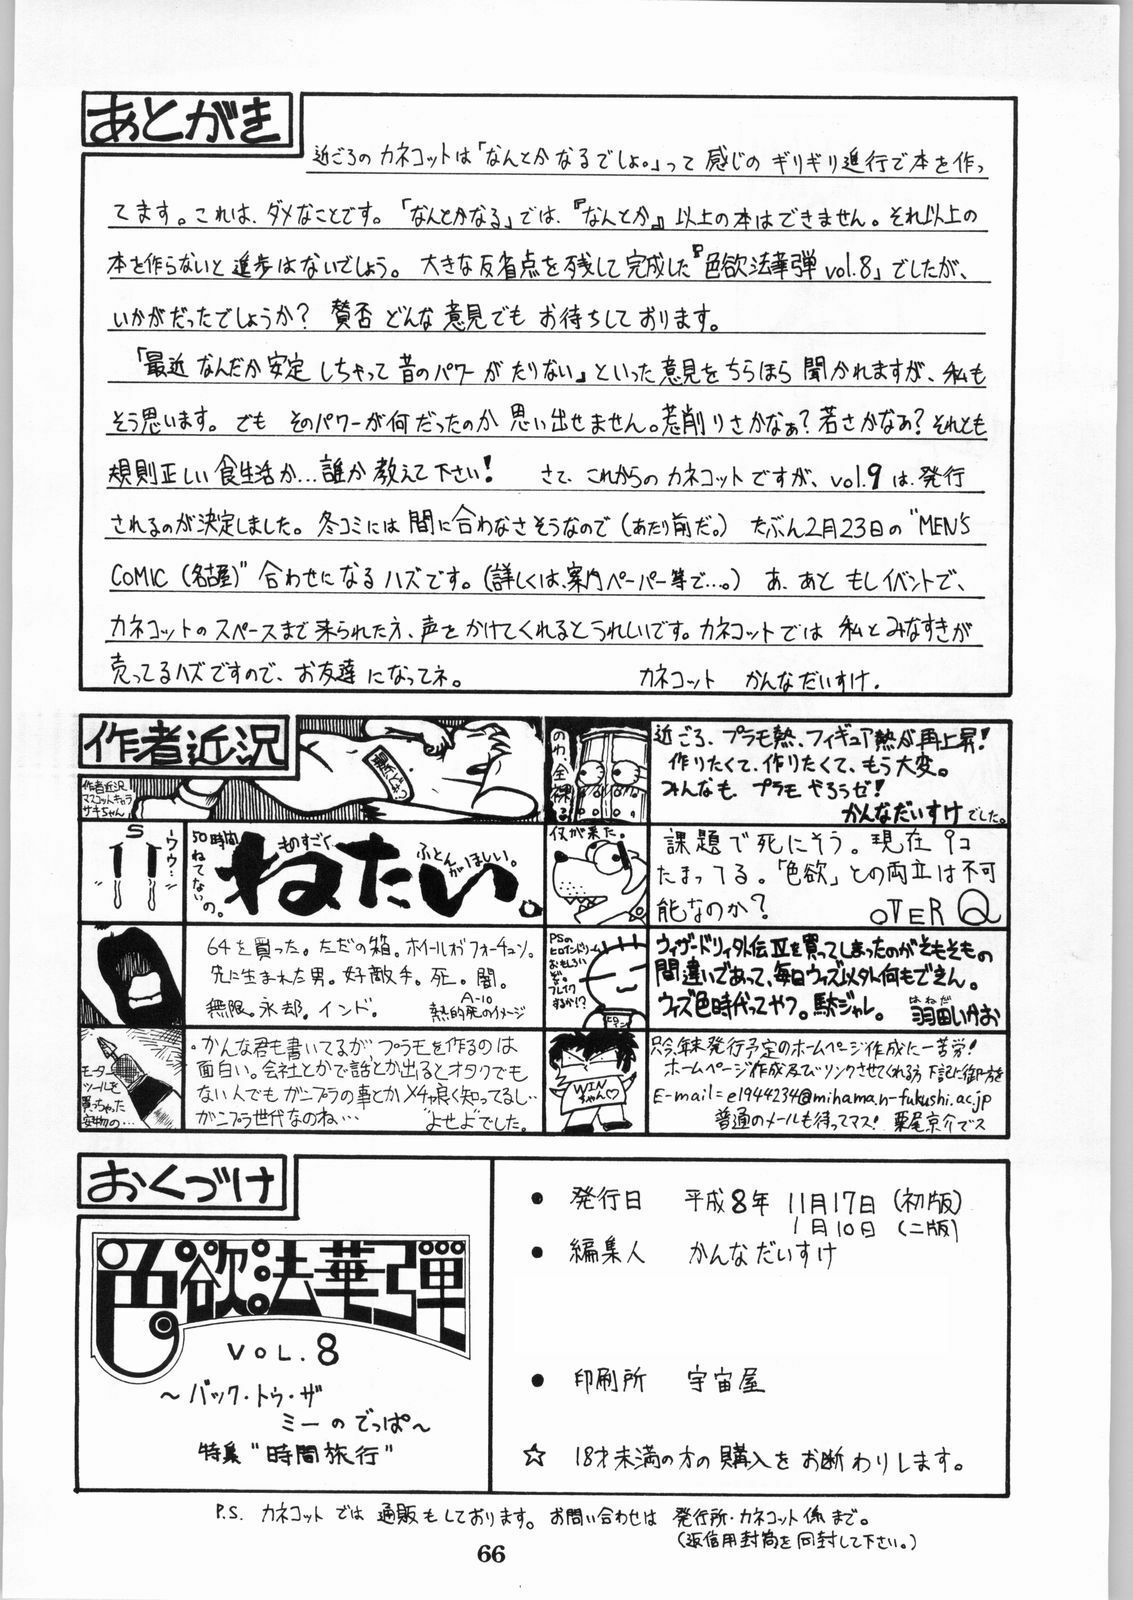 あとがき
近ごろの カネコットは「なんとか なるでしょ。」って 感じの ギリギリ進行で本を作っ
てます。これは、ダメなことです。「なんとかなる」では、『なんとか』以上の本はできません。それ以上の
本を作らないと 進歩はないでしょう。 大きな反省点を残して完成した『色欲法華弾 vol.8」でしたが、
いかがだったでしょうか? 賛否 どんな意見でも お待ちしております。
「最近 なんだか安定 しちゃって 昔のパワーが たりない」といった意見をちらほら 聞かれますが、私も
そう思います。でも そのパワーが何だったのか 思い出せません。荒削りさかなぁ?若さかなぁ?それとも
規則正しい食生活か...誰か教えて下さい! さて、これからの カネコットですが、vol.9 は、発行
されるのが決定しました。冬コミには間に合わなさそうなので(あたり前だ。)たぶん2月23日の "MEN's
COMIC (名古屋)" 合わせになるハズです。(詳しくは、案内ペーパー等で...。) あ、あと もしイベントで、
カネコットのスペースまで来られた方、声をかけてくれるとうれしいです。カネコットでは 私とみなすきが
売ってるハズですので、お友達になってネ。 カネコット かんなだいすけ.
作者近況
作者近況
マスコットキャラ
サキちゃん
のわ、全裸る
近ごろ、プラモ熱、フィギュア熱が再上昇!
作りたくて、作りたくて、もう大変。
みんなも、プラモやろうゼ!
かんなだいすけでした。
S
ーウゥ...
50時間
ねてないの。
ものすごく
ねたい。
ふとんがほしい。
何が来た。
課題で死にそう。現在9コ
たまってる。「色欲」との両立は不可
能なのか? OVER Q
64を買った。ただの箱。ホイールオブフォーチュン。
先に生まれた男。好敵手。死。闇。
無限。永却。インド。
A-10
熱的死のイメージ
PSの
ヒロインドリーム
おもしろい
ぞ。
ブレイク
するか!?
ウィザードリィ外伝Ⅳを買ってしまったのがそもそもの
間違いであって、毎日ウィズ以外何もできん。
ウィズ色時代ってやつ。駄ジャレ。
はねだ
羽田いかお
モーター
ツールを
買っちゃった
安物の...
・かんな君も書いてるが、プラモを作るのは
面白い。会社とかで話とか出るとオタクでも
ない人でもガンプラの事とかメチャ良く知ってるし...
ガンプラ世代なのね... よせよでした。
WIN
ちゃん♡
只今、年末発行予定のホームページ作成に一苦労!
ホームページ作成及びリンクさせてくれる方 下記に御一方を
E-mail=e1944234@mihama.n-fukushi.ac.jp
普通のメールも待ってマス! 栗尾京介でス
おくづけ
色欲法華弾
VOL.8
~バック・トゥ・ザ
ミーのでっぱ~
特集 "時間旅行"
● 発行日 平成8年 11月17日(初版)
1月10日(二版)
● 編集人 かんなだいすけ
● 印刷所 宇宙屋
☆ 18才未満の方の購入をお断わりします。
P.S. カネコットでは 通販もしております。お問い合わせは 発行所・カネコット係まで。
(返信用封筒を同封して下さい。)
66